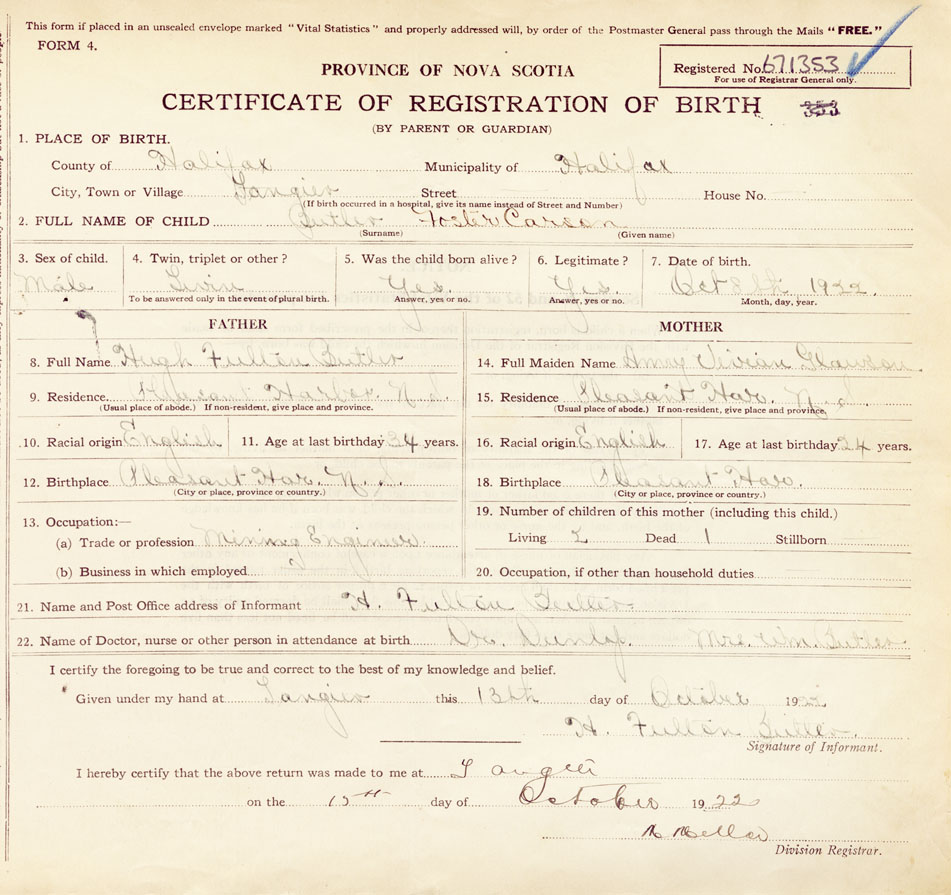 This form if placed in an unsealed envelope marked "Vital Statistics" and properly addressed will, by order of the Postmaster General pass through the Mails "FREE."
FORM 4.
PROVINCE OF NOVA SCOTIA
Registered No. 671353
For use of Registrar General only.
CERTIFICATE OF REGISTRATION OF BIRTH 353
(BY PARENT OR GUARDIAN)
1. PLACE OF BIRTH.
County of Halifax Municipality of Halifax
City, Town or Village Tangier Street House No.
(If birth occurred in a hospital, give its name instead of Street and Number)
2. FULL NAME OF CHILD Butler Foster Carson
(Surname) (Given name)
3. Sex of child. 4. Twin, triplet or other? 5. Was the child born alive? 6. Legitimate? 7. Date of birth.
Male Twin Yes. Yes. Oct 8th 1922.
To be answered only in the event of plural birth. Answer, yes or no. Answer, yes or no. Month, day, year.
FATHER MOTHER
8. Full Name Hugh Fulton Butler 14. Full Maiden Name Amy Vivian Glawson
9. Residence Pleasant Harbor. N. S. 15. Residence Pleasant Har. N. S
(Usual place of abode.) If non-resident, give place and province. (Usual place of abode.) If non-resident, give place and province.
10. Racial origin English 11. Age at last birthday 34 years. 16. Racial origin English 17. Age at last birthday 24 years.
12. Birthplace Pleasant Har. N. S. 18. Birthplace Pleasant Har.
(City or place, province or country.) (City or place, province or country.)
13. Occupation:— 19. Number of children of this mother (including this child.)
(a) Trade or profession Mining Engineer Living 2 Dead 1 Stillborn
(b) Business in which employed 20. Occupation, if other than household duties
21. Name and Post Office address of Informant H. Fulton Butler
22. Name of Doctor, nurse or other person in attendance at birth Dr. Dunlop. Mrs. Wm. Butler
I certify the foregoing to be true and correct to the best of my knowledge and belief.
Given under my hand at Tangier this 13th day of October 1922
H. Fulton Butler.
Signature of Informant.
I hereby certify that the above return was made to me at Tangier
on the 15th day of October 1922
Division Registrar.